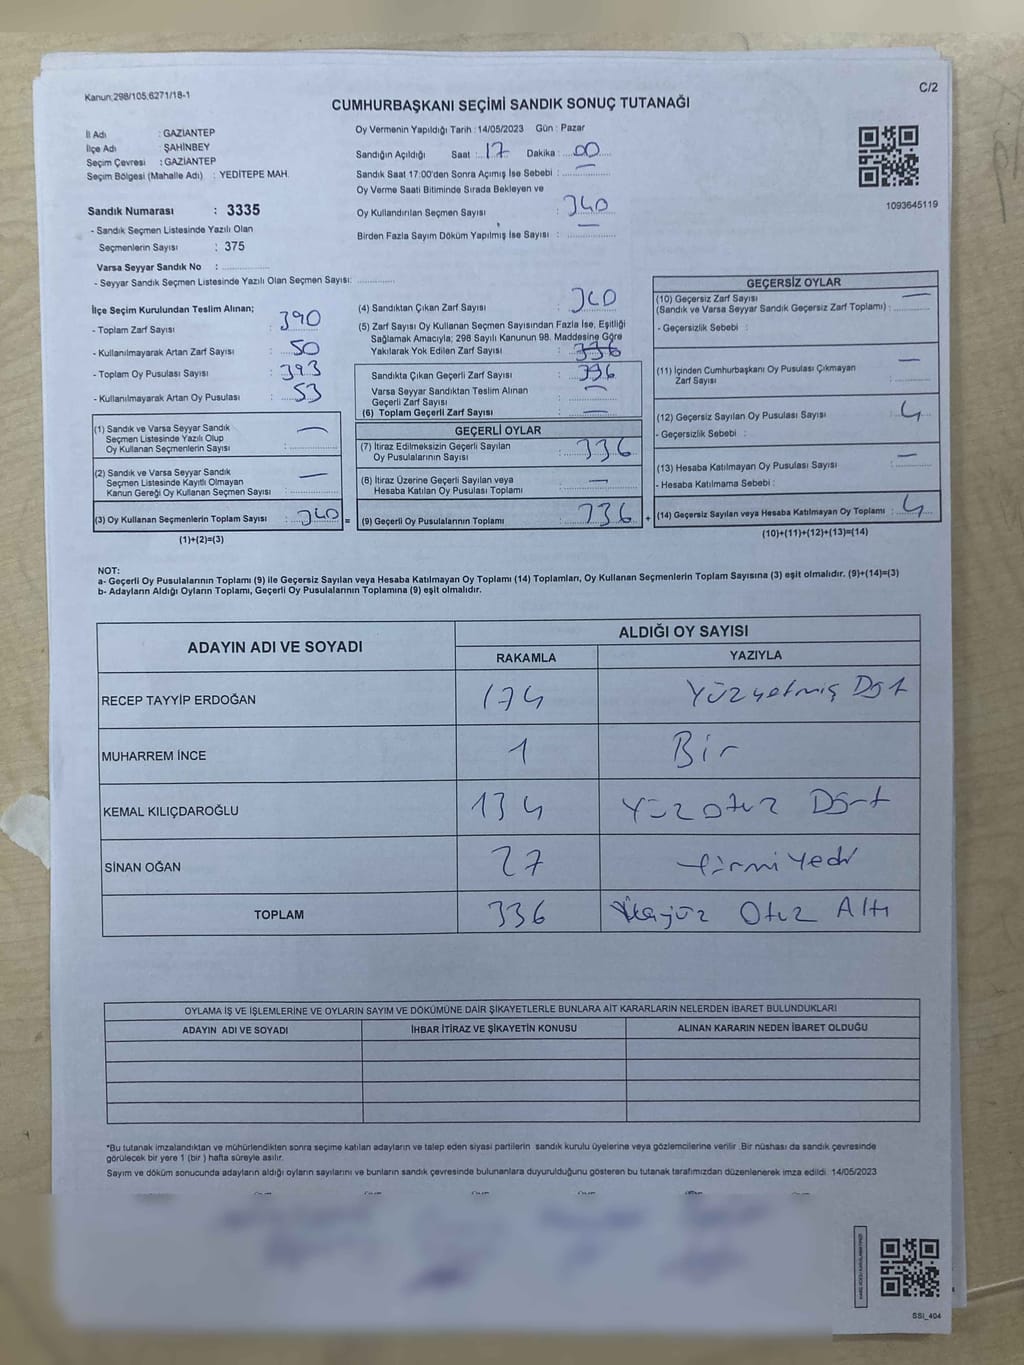 Kanun:298/105,6271/18-1
C/2
CUMHURBAŞKANI SEÇİMİ SANDIK SONUÇ TUTANAĞI
İl Adı : GAZİANTEP
İlçe Adı : ŞAHİNBEY
Seçim Çevresi : GAZİANTEP
Seçim Bölgesi (Mahalle Adı) : YEDİTEPE MAH.
Oy Vermenin Yapıldığı Tarih : 14/05/2023 Gün : Pazar
Sandığın Açıldığı Saat : 17 Dakika : 00
Sandık Saat 17:00'den Sonra Açımış İse Sebebi : —
Oy Verme Saati Bitiminde Sırada Bekleyen ve
Oy Kullandırılan Seçmen Sayısı : 340
Birden Fazla Sayım Döküm Yapılmış İse Sayısı : —
1093645119
Sandık Numarası : 3335
- Sandık Seçmen Listesinde Yazılı Olan
Seçmenlerin Sayısı : 375
Varsa Seyyar Sandık No :
- Seyyar Sandık Seçmen Listesinde Yazılı Olan Seçmen Sayısı:
İlçe Seçim Kurulundan Teslim Alınan;
- Toplam Zarf Sayısı : 390
- Kullanılmayarak Artan Zarf Sayısı : 50
- Toplam Oy Pusulası Sayısı : 393
- Kullanılmayarak Artan Oy Pusulası : 53
(1) Sandık ve Varsa Seyyar Sandık
Seçmen Listesinde Yazılı Olup
Oy Kullanan Seçmenlerin Sayısı : —
(2) Sandık ve Varsa Seyyar Sandık
Seçmen Listesinde Kayıtlı Olmayan
Kanun Gereği Oy Kullanan Seçmen Sayısı : —
(3) Oy Kullanan Seçmenlerin Toplam Sayısı : 340 =
(1)+(2)=(3)
(4) Sandıktan Çıkan Zarf Sayısı : 340
(5) Zarf Sayısı Oy Kullanan Seçmen Sayısından Fazla İse, Eşitliği
Sağlamak Amacıyla; 298 Sayılı Kanunun 98. Maddesine Göre
Yakılarak Yok Edilen Zarf Sayısı : 336
Sandıkta Çıkan Geçerli Zarf Sayısı : 336
Varsa Seyyar Sandıktan Teslim Alınan
Geçerli Zarf Sayısı : —
(6) Toplam Geçerli Zarf Sayısı : —
GEÇERLİ OYLAR
(7) İtiraz Edilmeksizin Geçerli Sayılan
Oy Pusulalarının Sayısı : 336
(8) İtiraz Üzerine Geçerli Sayılan veya
Hesaba Katılan Oy Pusulası Toplamı : —
(9) Geçerli Oy Pusulalarının Toplamı : 336 +
GEÇERSİZ OYLAR
(10) Geçersiz Zarf Sayısı
(Sandık ve Varsa Seyyar Sandık Geçersiz Zarf Toplamı) : —
- Geçersizlik Sebebi :
(11) İçinden Cumhurbaşkanı Oy Pusulası Çıkmayan
Zarf Sayısı : —
(12) Geçersiz Sayılan Oy Pusulası Sayısı : 4
- Geçersizlik Sebebi :
(13) Hesaba Katılmayan Oy Pusulası Sayısı : —
- Hesaba Katılmama Sebebi :
(14) Geçersiz Sayılan veya Hesaba Katılmayan Oy Toplamı : 4
(10)+(11)+(12)+(13)=(14)
NOT:
a- Geçerli Oy Pusulalarının Toplamı (9) ile Geçersiz Sayılan veya Hesaba Katılmayan Oy Toplamı (14) Toplamları, Oy Kullanan Seçmenlerin Toplam Sayısına (3) eşit olmalıdır. (9)+(14)=(3)
b- Adayların Aldığı Oyların Toplamı, Geçerli Oy Pusulalarının Toplamına (9) eşit olmalıdır.
ADAYIN ADI VE SOYADI
ALDIĞI OY SAYISI
RAKAMLA YAZIYLA
RECEP TAYYİP ERDOĞAN 174 Yüzyetmiş Dört
MUHARREM İNCE 1 Bir
KEMAL KILIÇDAROĞLU 134 Yüzotuz Dört
SİNAN OĞAN 27 Yirmi Yedi
TOPLAM 336 Otuz Altı
OYLAMA İŞ VE İŞLEMLERİNE VE OYLARIN SAYIM VE DÖKÜMÜNE DAİR ŞİKAYETLERLE BUNLARA AİT KARARLARIN NELERDEN İBARET BULUNDUKLARI
ADAYIN ADI VE SOYADI İHBAR İTİRAZ VE ŞİKAYETİN KONUSU ALINAN KARARIN NEDEN İBARET OLDUĞU
*Bu tutanak imzalandıktan ve mühürlendikten sonra seçime katılan adayların ve talep eden siyasi partilerin sandık kurulu üyelerine veya gözlemcilerine verilir .Bir nüshası da sandık çevresinde
görülecek bir yere 1 (bir ) hafta süreyle asılır.
Sayım ve döküm sonucunda adayların aldığı oyların sayılarını ve bunların sandık çevresinde bulunanlara duyurulduğunu gösteren bu tutanak tarafımızdan düzenlenerek imza edildi. 14/05/2023
SSI_404